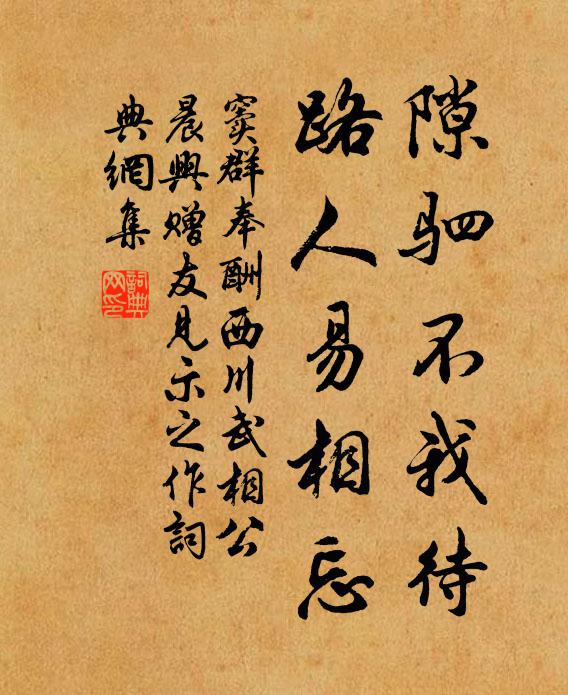 隙驷不我待
路人易相忘
窦群奉酬西川武相公
晨興赠友見示之作詞
典網集
詞典
网印